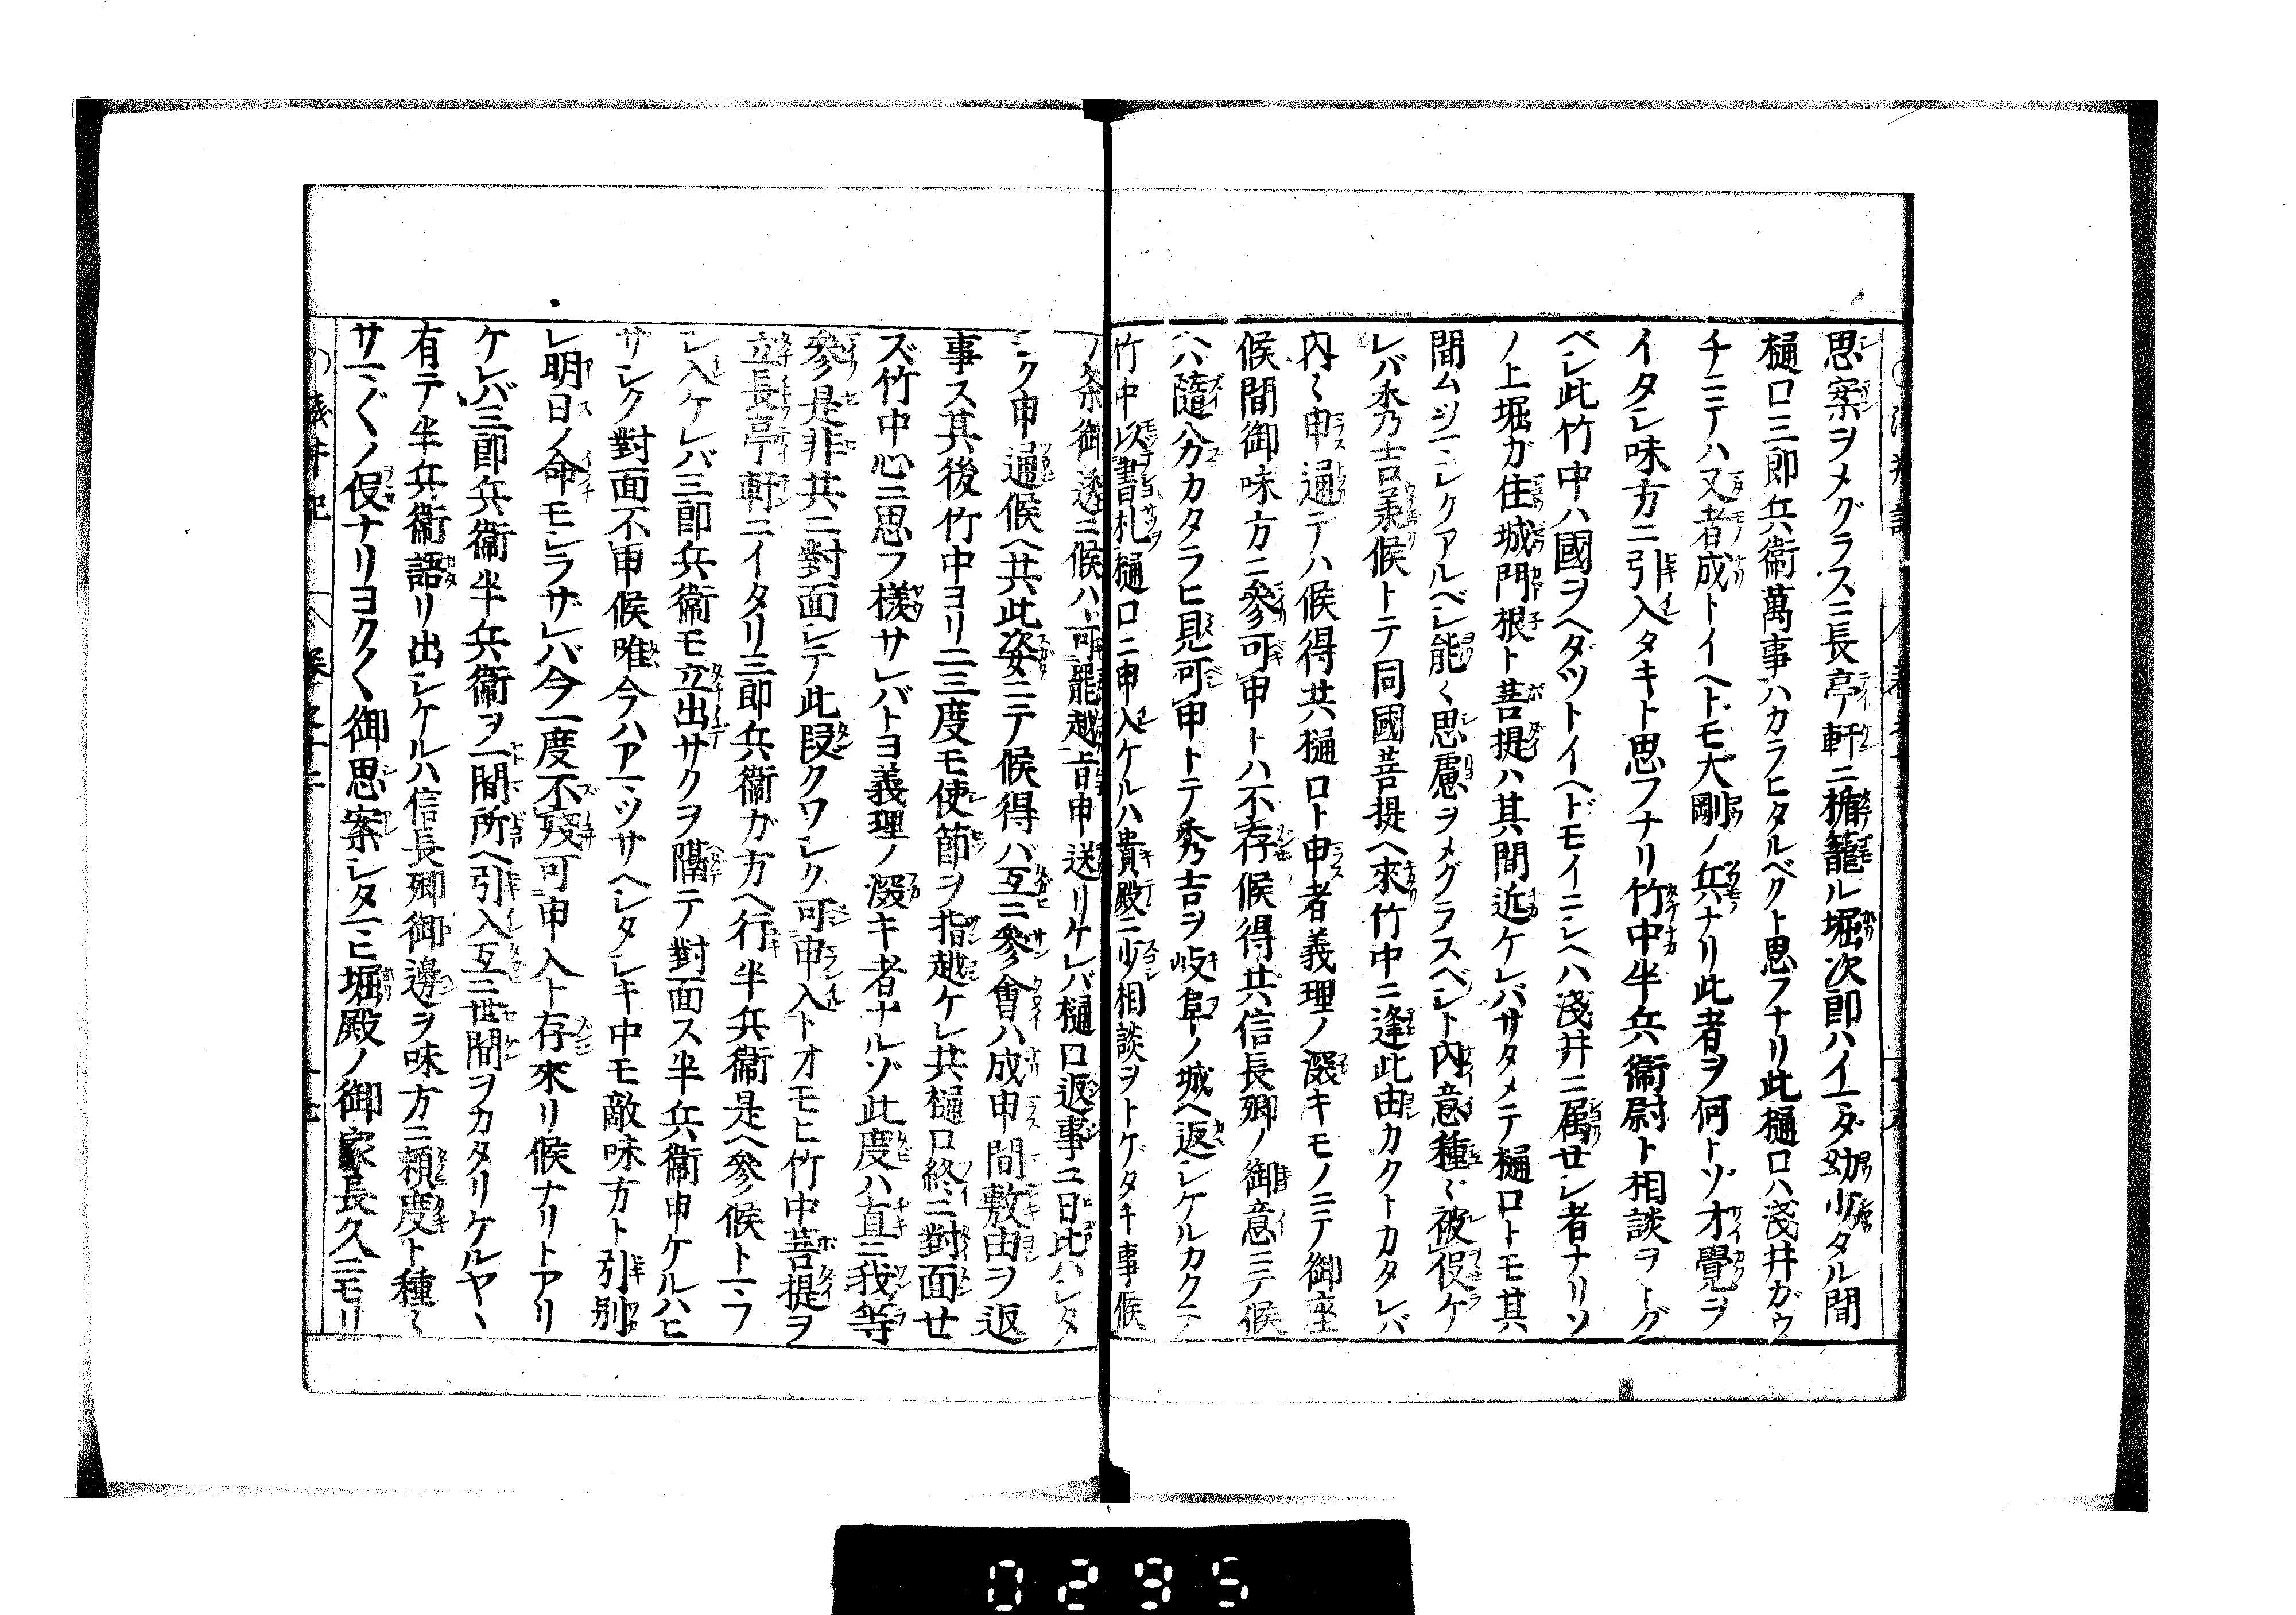 思案ヲメグラスニ長亭軒ニ楯籠ル堀次郎ハイマダ幼少タル間
樋口三郎兵衞萬事ハカラヒタルベクト思フナリ此樋口ハ淺井ガウ
チニテハ又者成トイヘトモ大剛ノ兵ナリ此者ヲ何トゾ才覺ヲ
イタシ味方ニ引入タキト思フナリ竹中半兵衞尉ト相談ヲトグ
ベシ此竹中ハ國ヲヘダツトイヘドモイニシヘハ淺井ニ属セシ者ナリソ
ノ上堀ガ住城門根ト菩提ハ其間近ケレバサタメテ樋口トモ其
間ムツマシクアルベシ能〱思慮ヲメグラスベシト内意種〻被仰ケ
レバ秀吉承候トテ同國菩提ヘ來竹中ニ逢此由カクトカタレバ
内〻申通テハ候得共樋口ト申者義理ノ深キモノニテ御座
候間御味方ニ參可申トハ不存候得共信長卿ノ御意ニテ候
ヘハ隨分カタラヒ見可申トテ秀吉ヲ岐阜ノ城ヘ返シケルカクテ
竹中以書札樋口ニ申入ケルハ貴殿ニ少相談ヲトゲタキ事候
ノ条御透ニ候ハ可罷越旨申送リケレバ樋口返事ニ日比ハシタ
シク申通候ヘ共此姿ニテ候得バ互ニ參會ハ成申間敷由ヲ返
事ス其後竹中ヨリ二三度モ使節ヲ指越ケレ共樋口終ニ對面せ
ズ竹中心ニ思フ様サレバトヨ義理ノ深キ者ナルゾ此度ハ直ニ我等
參是非共ニ對面シテ此段クワシク可申入トオモヒ竹中菩提ヲ
立長亭軒ニイタリ三郎兵衞ガ方ヘ行半兵衞是ヘ參候トマフ
シ入ケレバ三郎兵衞モ立出サクヲ隔テ對面ス半兵衞申ケルハヒ
サシク對面不申候唯今ハアマツサヘシタシキ中モ敵味方ト引別
レ明日ノ命モシラザレバ今一度不殘可申入ト存來リ候ナリトアリ
ケレバ三郎兵衞半兵衞ヲ一間所ヘ引入互ニ世間ヲカタリケルヤヽ
有テ半兵衞語リ出シケルハ信長卿御邊ヲ味方ニ頼度ト種〻
サマ〲ノ仰ナリヨク〱御思案シタマヒ堀殿ノ御家長久ニモリ